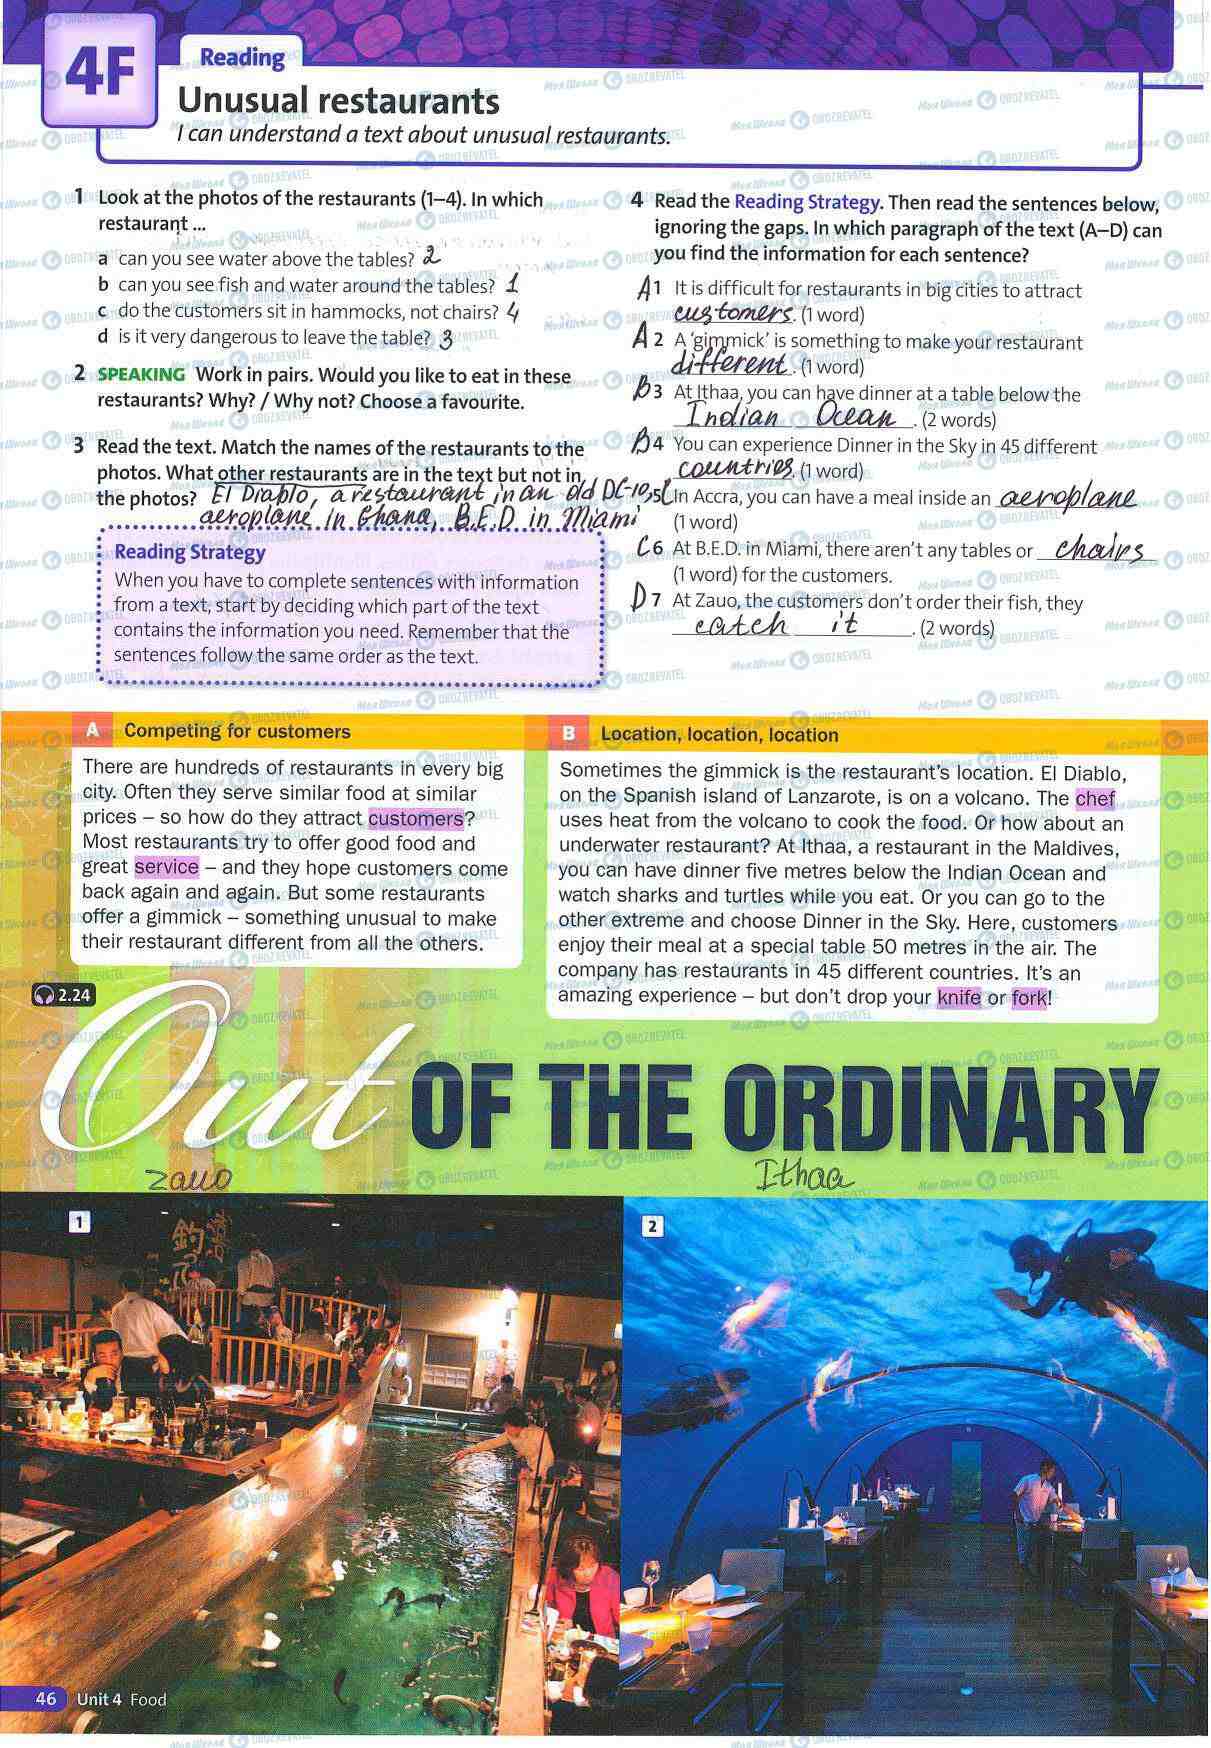 4F
Reading
Unusual restaurants
I can understand a text about unusual restaurants.
1 Look at the photos of the restaurants (1–4). In which
restaurant ...
a can you see water above the tables? 2
b can you see fish and water around the tables? 1
c do the customers sit in hammocks, not chairs? 4
d is it very dangerous to leave the table? 3
2 SPEAKING Work in pairs. Would you like to eat in these
restaurants? Why? / Why not? Choose a favourite.
3 Read the text. Match the names of the restaurants to the
photos. What other restaurants are in the text but not in
the photos? El Diablo, a restaurant in an old DC-10
aeroplane in Ghana, B.E.D in Miami
Reading Strategy
When you have to complete sentences with information
from a text, start by deciding which part of the text
contains the information you need. Remember that the
sentences follow the same order as the text.
4 Read the Reading Strategy. Then read the sentences below,
ignoring the gaps. In which paragraph of the text (A–D) can
you find the information for each sentence?
A 1 It is difficult for restaurants in big cities to attract
customers. (1 word)
A 2 A 'gimmick' is something to make your restaurant
different. (1 word)
B 3 At Ithaa, you can have dinner at a table below the
Indian Ocean. (2 words)
B 4 You can experience Dinner in the Sky in 45 different
countries (1 word)
5 In Accra, you can have a meal inside an aeroplane
(1 word)
C 6 At B.E.D. in Miami, there aren't any tables or chairs
(1 word) for the customers.
D 7 At Zauo, the customers don't order their fish, they
catch it. (2 words)
A Competing for customers
There are hundreds of restaurants in every big
city. Often they serve similar food at similar
prices – so how do they attract customers?
Most restaurants try to offer good food and
great service – and they hope customers come
back again and again. But some restaurants
offer a gimmick – something unusual to make
their restaurant different from all the others.
B Location, location, location
Sometimes the gimmick is the restaurant's location. El Diablo,
on the Spanish island of Lanzarote, is on a volcano. The chef
uses heat from the volcano to cook the food. Or how about an
underwater restaurant? At Ithaa, a restaurant in the Maldives,
you can have dinner five metres below the Indian Ocean and
watch sharks and turtles while you eat. Or you can go to the
other extreme and choose Dinner in the Sky. Here, customers
enjoy their meal at a special table 50 metres in the air. The
company has restaurants in 45 different countries. It's an
amazing experience – but don't drop your knife or fork!
2.24
Out OF THE ORDINARY
Zauo
Ithaa
1
2
46 Unit 4 Food
Моя Школа OBOZREVATEL